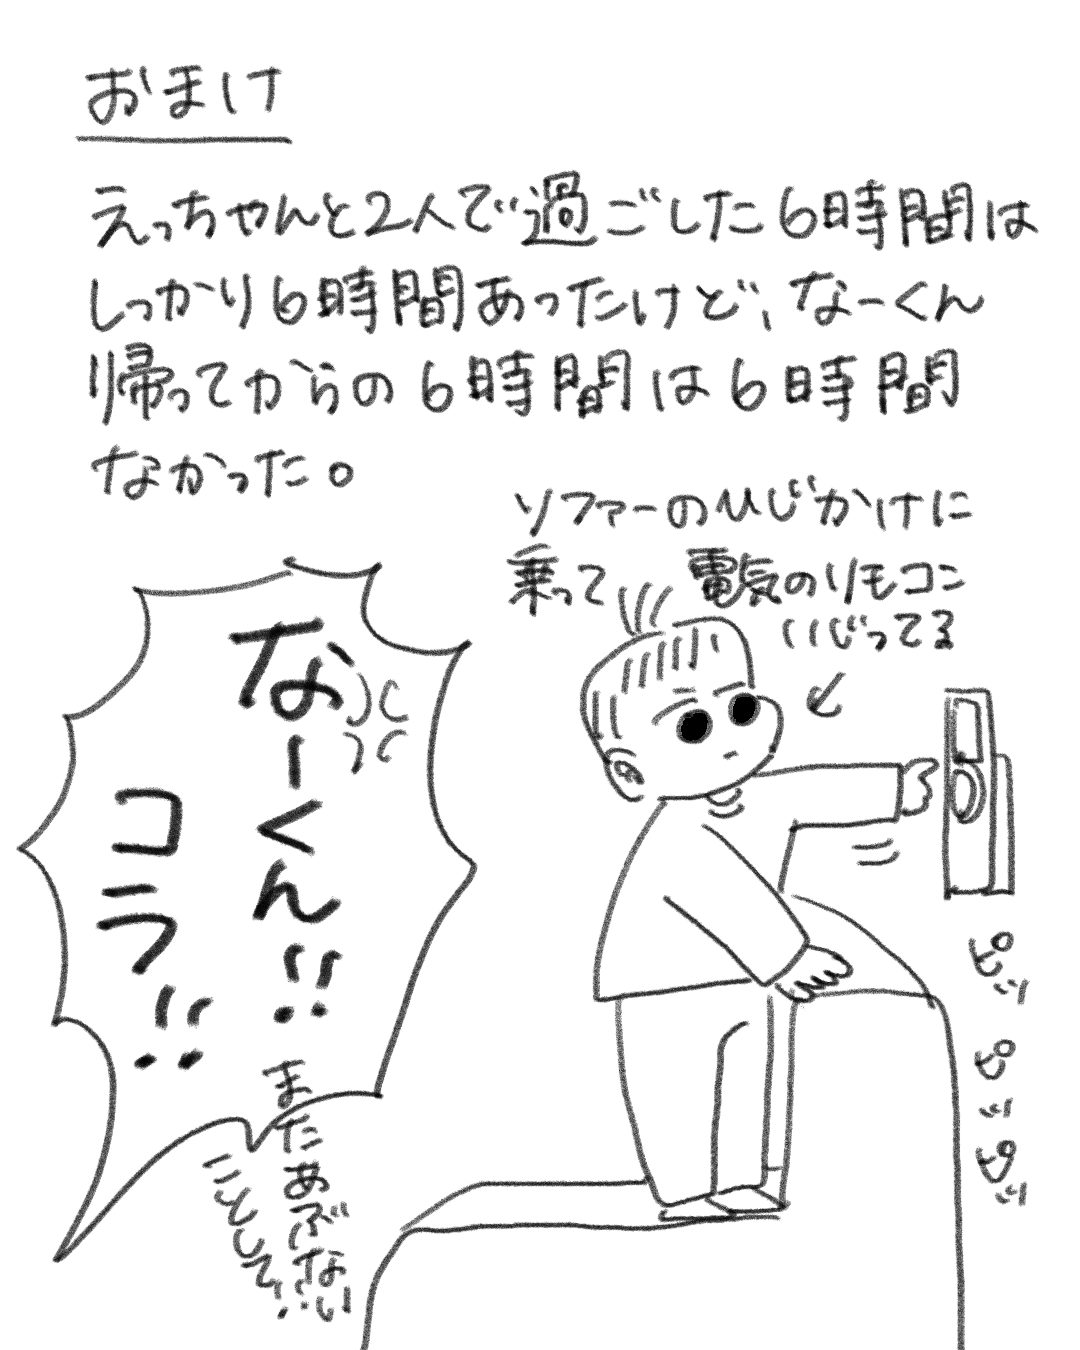 おまけ
えっちゃんと2人で過ごした6時間は
しっかり6時間あったけど、なーくん
帰ってからの6時間は6時間
なかった。
ソファーのひじかけに
乗って 電気のリモコン
いじってる
なーくん!!
コラ!!
まだあぶない
ことして!!
ピッ
ピッ
ピッ